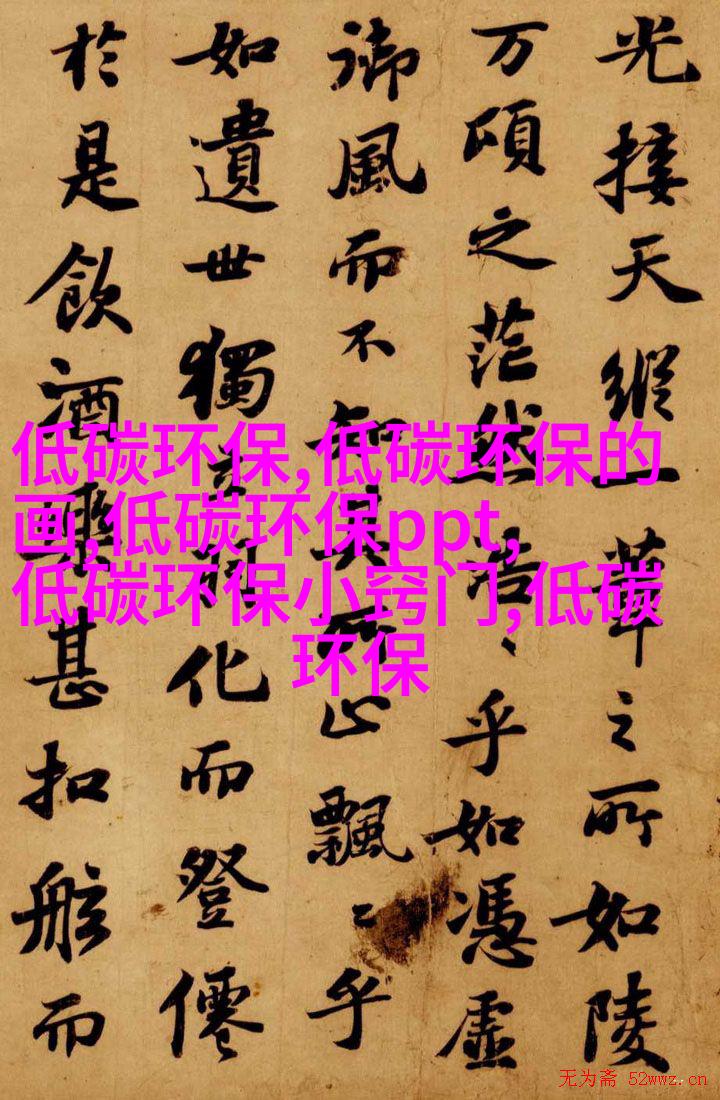 光接天縱一葦之所如陵
万頃之茫然浩〻乎如憑虛
御風而不知其所止飄〻乎
如遺世獨立羽化而登僊
於是飲酒樂甚扣舷而
低碳环保,低碳环保的
画,低碳环保ppt,
低碳环保小窍门,低碳
环保
无为斋 52wwz.cn